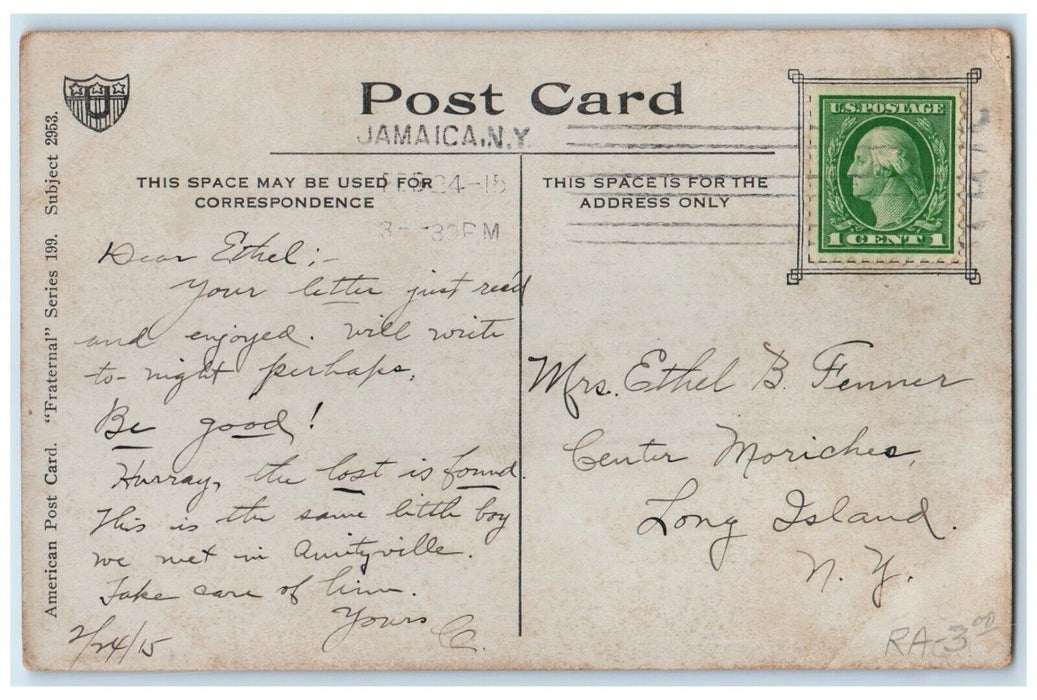 Post Card
JAMAICA, N.Y.
FEB 24-15
3 - 30 PM
U.S. POSTAGE
1 CENT 1
THIS SPACE MAY BE USED FOR
CORRESPONDENCE
THIS SPACE IS FOR THE
ADDRESS ONLY
American Post Card. "Fraternal" Series 199. Subject 2953.
U
Dear Ethel;-
Your letter just rec'd
and enjoyed. Will write
to-night perhaps.
Be good!
Hurray, the lost is found.
This is the same little boy
we met in Amityville.
Take care of him.
Yours C.
2/24/15
Mrs. Ethel B. Fenner
Center Moriches,
Long Island.
N. Y.
RA-3 00